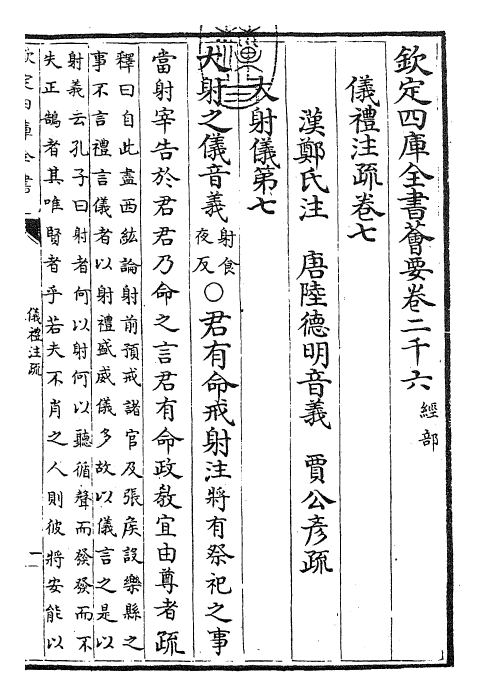 欽定四庫全書薈要卷二千六 經部
儀禮注疏卷七
漢鄭氏注 唐陸德明音義 賈公彥疏
大射儀第七
大射之儀音義射食夜反○君有命戒射注將有祭祀之事
當射宰告於君君乃命之言君有命政教宜由尊者疏
釋曰自此盡西紘論射前預戒諸官及張侯設樂縣之
事不言禮言儀者以射禮盛威儀多故以儀言之是以
射義云孔子曰射者何以射何以聽循聲而發發而不
失正鵠者其唯賢者乎若夫不肖之人則彼將安能以
欽定四庫全書
儀禮注疏
一